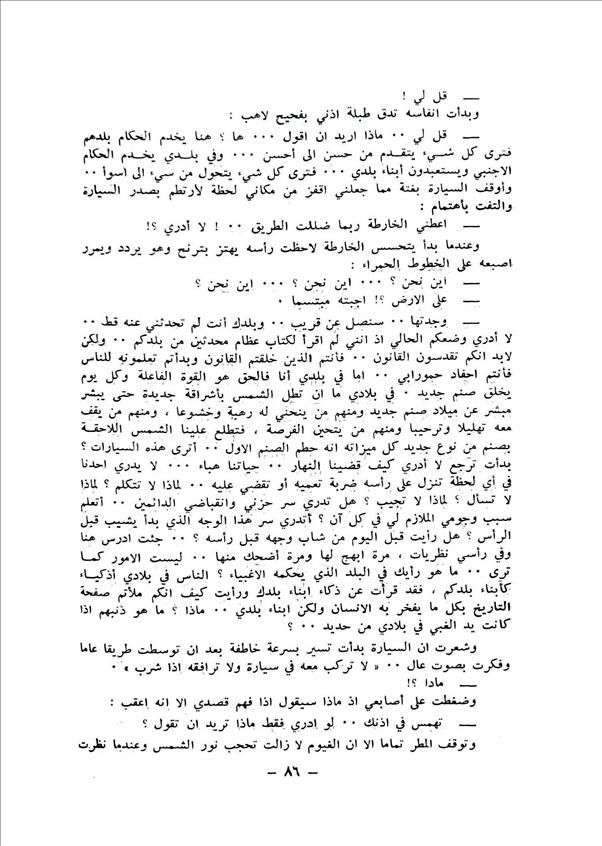 — قل لي !
وبدأت انفاسه تدق طبلة اذني بفحيح لاهب :
— قل لي ٠٠ ماذا اريد ان اقول ٠٠٠ ها ؟ هنا يخدم الحكام بلدهم
فترى كل شيء يتقدم من حسن الى أحسن ٠٠٠ وفي بلدي يخدم الحكام
الاجنبي ويستعبدون أبناء بلدي ٠٠٠ فترى كل شيء يتحول من سيء الى اسوأ ٠٠
وأوقف السيارة بغتة مما جعلني اقفز من مكاني لحظة لأرتطم بصدر السيارة
والتفت بأهتمام :
— اعطني الخارطة ربما ضللت الطريق ٠٠ ! لا أدري ؟!
وعندما بدأ يتحسس الخارطة لاحظت رأسه يهتز بترنح وهو يردد ويمرر
اصبعه على الخطوط الحمراء :
— أين نحن ؟ ٠٠٠ اين نحن ؟ ٠٠٠ اين نحن ؟
— على الارض ؟! اجبته مبتسما ٠
— وجدتها ٠٠ سنصل عن قريب ٠٠ وبلدك أنت لم تحدثني عنه قط ٠٠
لا أدري وضعكم الحالي اذ انني لم اقرأ لكتاب عظام محدثين من بلدكم ٠٠ ولكن
لابد انكم تقدسون القانون ٠٠ فأنتم الذين خلقتم القانون وبدأتم تعلمونه للناس
فأنتم احفاد حمورابي ٠٠ اما في بلدي أنا فالحق هو القوة الفاعلة وكل يوم
يخلق صنم جديد ٠ في بلادي ما ان تطل الشمس بأشراقة جديدة حتى يبشر
مبشر عن ميلاد صنم جديد ومنهم من ينحني له رهبة وخشوعا ، ومنهم من يقف
معه تهليلا وترحيبا ومنهم من يتحين الفرصة ، فتطلع علينا الشمس اللاحقة
بصنم من نوع جديد كل ميزاته انه حطم الصنم الاول ٠٠ أترى هذه السيارات ؟
بدأت ترجع لا أدري كيف قضينا النهار ٠٠ حياتنا هباء ٠٠٠ لا يدري احدنا
في أي لحظة تنزل على رأسه ضربة تعميه أو تقضي عليه ٠٠ لماذا لا تتكلم ؟ لماذا
لا تسأل ؟ لماذا لا تجيب ؟ هل تدري سر حزني وانقباضي الدائمين ٠٠ أتعلم
سبب وجومي الملازم لي في كل آن ؟ أتدري سر هذا الوجه الذي بدأ يشيب قبل
الرأس ؟ هل رأيت قبل اليوم من شاب وجهه قبل رأسه ؟ ٠٠ جئت ادرس هنا
وفي رأسي نظريات ، مرة ابهج لها ومرة أضحك منها ٠٠ ليست الامور كما
ترى ٠٠ ما هو رأيك في البلد الذي يحكمه الاغبياء ؟ الناس في بلادي أذكياء
كأبناء بلدكم ، فقد قرأت عن ذكاء ابناء بلدك ورأيت كيف انكم ملأتم صفحة
التاريخ بكل ما يفخر به الانسان ولكن ابناء بلدي ٠٠ ماذا ؟ ما هو ذنبهم اذا
كانت يد الغبي في بلادي من حديد ٠٠ ؟
وشعرت ان السيارة بدأت تسير بسرعة خاطفة بعد ان توسطت طريقا عاما
وفكرت بصوت عال ٠٠ « لا تركب معه في سيارة ولا ترافقه اذا شرب » ٠
— ماذا ؟!
وضغطت على أصابعي اذ ماذا سيقول اذا فهم قصدي الا انه اعقب :
— تهمس في اذنك ٠٠ لو ادري فقط ماذا تريد ان تقول ؟
وتوقف المطر تماما الا ان الغيوم لا زالت تحجب نور الشمس وعندما نظرت
— ٨٦ —